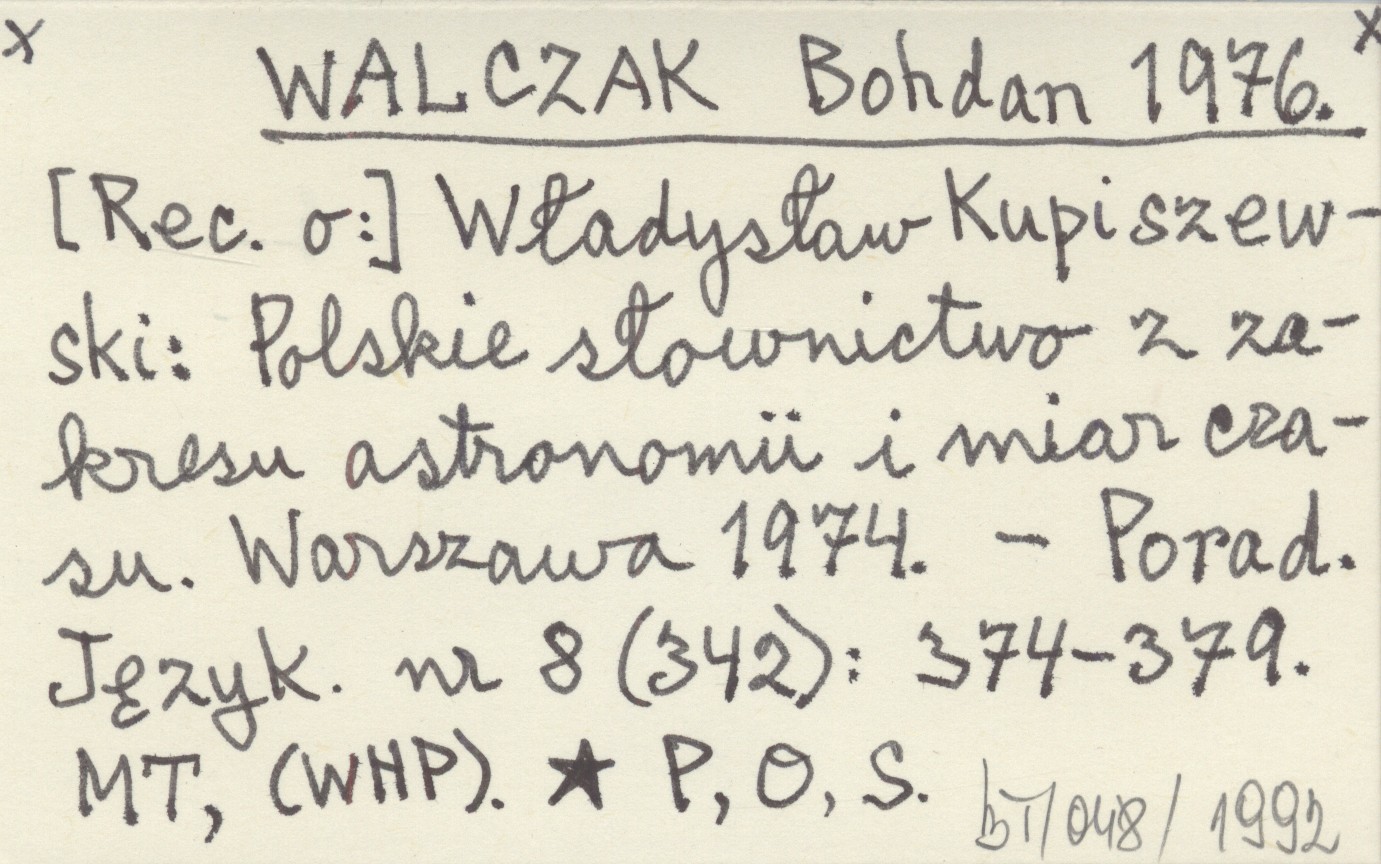 x x
WALCZAK Bohdan 1976.
[Rec. o:] Władysław Kupiszew-
ski: Polskie słownictwo z za-
kresu astronomii i miar cza-
su. Warszawa 1974. - Porad.
Język. nr 8 (342): 374-379.
MT, (WHP). ★ P, O, S.
/048/ 1992